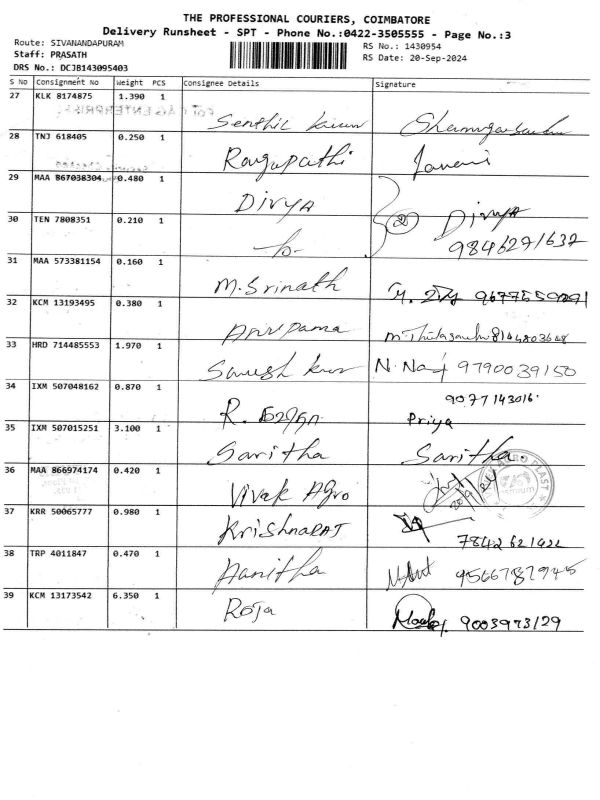 THE PROFESSIONAL COURIERS, COIMBATORE
Delivery Runsheet - SPT - Phone No.:0422-3505555 - Page No.:3
Route: SIVANANDAPURAM
RS No.: 1430954
Staff: PRASATH
RS Date: 20-Sep-2024
DRS No.: DCJB143095403
S No Consignment No Weight PCS Consignee Details Signature
27 KLK 8174875 1.390 1 Senthil
28 TNJ 618405 0.250 1 Ragupathi Janani
29 MAA 867038304 0.480 1 Divya
30 TEN 7808351 0.210 1 -do- 2 Divya
9846271632
31 MAA 573381154 0.160 1 M.Srinath
32 KCM 13193495 0.380 1 Anupama
33 HRD 714485553 1.970 1 N. 9790039150
34 IXM 507048162 0.870 1 R. 9077143016
Priya
35 IXM 507015251 3.100 1 Saritha Saritha.
36 MAA 866974174 0.420 1 Vivek Agro 20/9/24
AGRO PLAST
37 KRR 50065777 0.980 1 KrishnaRAJ 7842621922
38 TRP 4011847 0.470 1 Hanitha 9566787945
39 KCM 13173542 6.350 1 Roja 9003973129